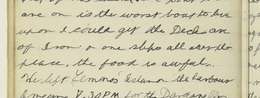 one on is the worst boat to be
upon I could get the Decks are
of Iron & one slips all over the
place, the food is awful.
We left Lemnos Island in the Harbour
7.30 PM for the Dardanelles